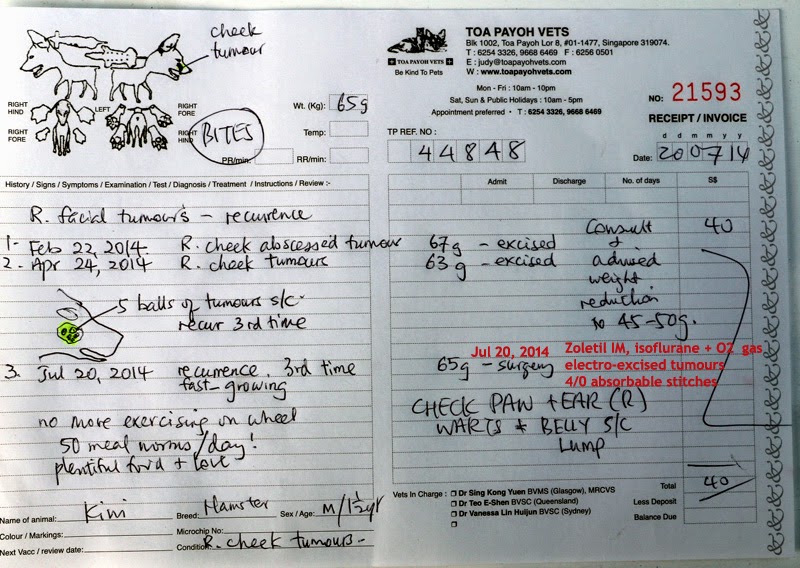 cheek
tumour
RIGHT
HIND
LEFT
RIGHT
FORE
RIGHT
FORE
RIGHT
HIND
BITES
Wt. (Kg): 65g
Temp:
PR/min:
RR/min:
TOA PAYOH VETS
Blk 1002, Toa Payoh Lor 8, #01-1477, Singapore 319074.
T : 6254 3326, 9668 6469 F : 6256 0501
E : judy@toapayohvets.com
W : www.toapayohvets.com
TOA PAYOH VETS
Be Kind To Pets
Mon - Fri : 10am - 10pm
Sat, Sun & Public Holidays : 10am - 5pm
Appointment preferred • T : 6254 3326, 9668 6469
NO: 21593
RECEIPT / INVOICE
TP REF. NO :
44848
d d m m y y
Date: 200714
History / Signs / Symptoms / Examination / Test / Diagnosis / Treatment / Instructions / Review :-
Admit Discharge No. of days S$
R. facial tumours - recurrence
1- Feb 22, 2014. R. cheek abscessed tumour 67g - excised
2. Apr 24, 2014 R. cheek tumours 63g - excised
Consult 40
+
advised
weight
reduction
to 45-50g.
5 balls of tumours s/c
recur 3rd time
3. Jul 20, 2014 recurrence. 3rd time
fast-growing
65g - surgery
Jul 20, 2014 Zoletil IM, isoflurane + O2 gas
electro-excised tumours
4/0 absorbable stitches
no more exercising on wheel
50 meal worms/day!
plentiful food + love
CHECK PAW + EAR (R)
WARTS + BELLY S/C
LUMP
Name of animal: Kimi
Breed: Hamster
Sex / Age: M/1½yr
Colour / Markings:
Microchip No:
Next Vacc / review date:
Condition: R. cheek tumours-
Vets In Charge :
Dr Sing Kong Yuen BVMS (Glasgow), MRCVS
Dr Teo E-Shen BVSC (Queensland)
Dr Vanessa Lin Huijun BVSC (Sydney)
Total 40
Less Deposit
Balance Due